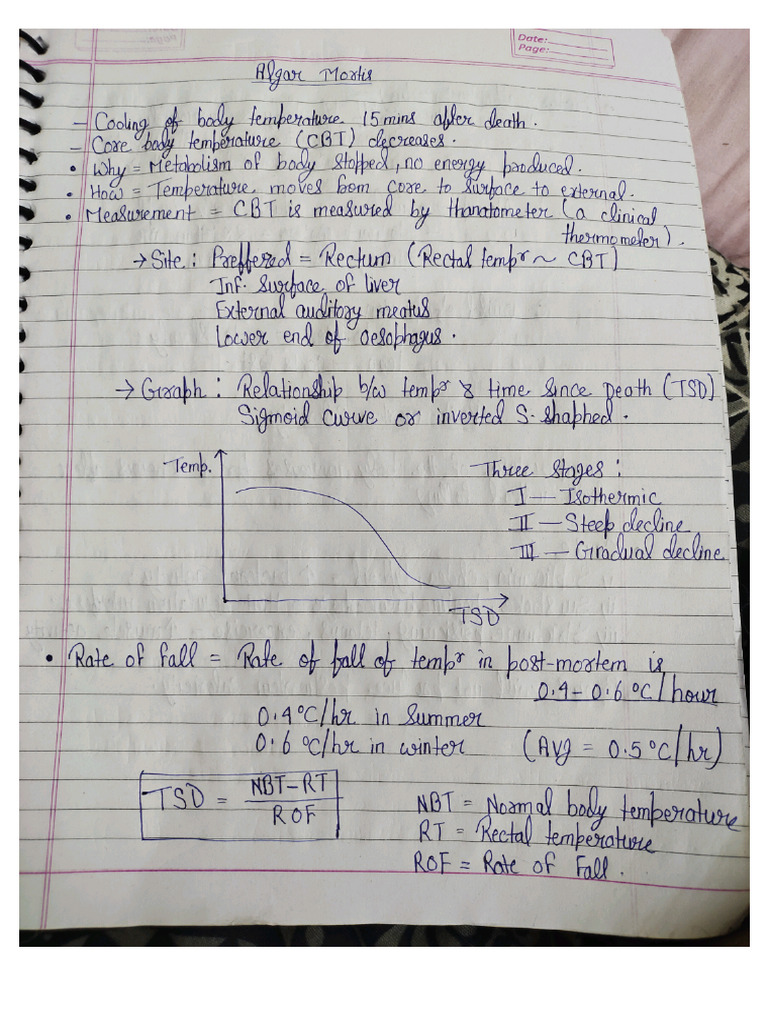 Date:
Page:
Algar Mortis
- Cooling of body temperature 15 mins after death.
- Core body temperature (CBT) decreases.
• Why = Metabolism of body stopped, no energy produced.
• How = Temperature moves from core to surface to external.
• Measurement = CBT is measured by thanatometer (a clinical
thermometer).
→ Site: Preffered = Rectum (Rectal tempr ~ CBT)
Inf. Surface of liver
External auditory meatus
Lower end of oesophagus.
→ Graph: Relationship b/w tempr & time since Death (TSD)
Sigmoid curve or inverted S-shaphed.
Temp.
Three stages:
I - Isothermic
II - Steep decline
III - Gradual decline
TSD
• Rate of fall = Rate of fall of tempr in post-mortem is
0.4-0.6°C/hour
0.4°C/hr in Summer
0.6°C/hr in winter (Avg = 0.5°C/hr)
TSD = NBT-RT
ROF
NBT = Normal body temperature
RT = Rectal temperature
ROF = Rate of Fall.